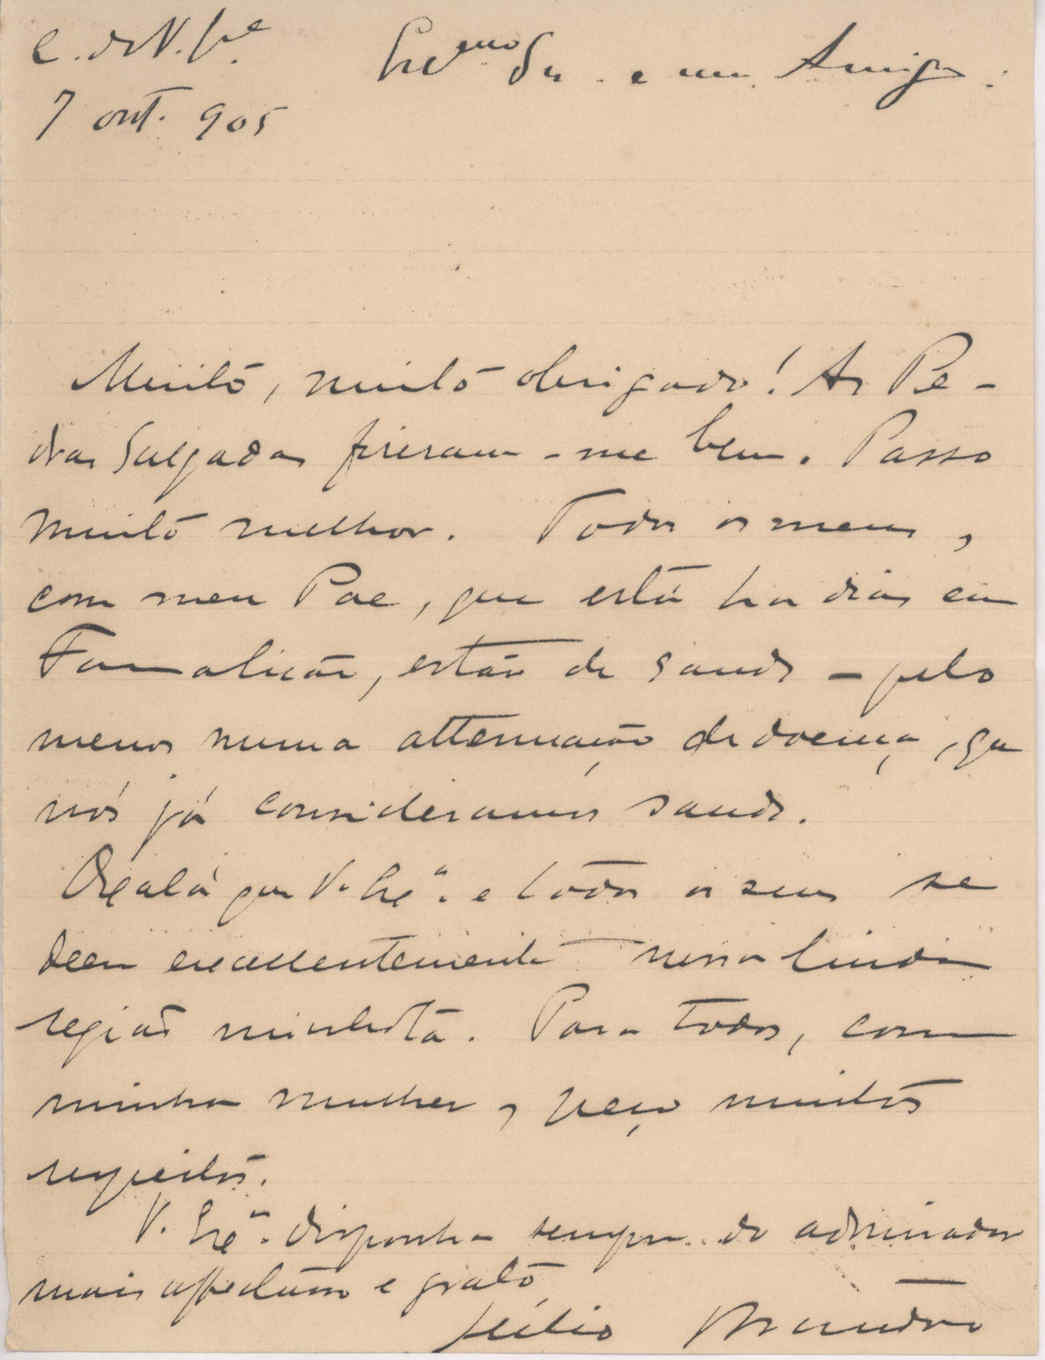 C. de V. f.ce
7 out. 905
Ex.mo Sr. e meu Amigo:
Muito, muito obrigado! As Pe-
dras Salgadas fizeram-me bem. Passo
muito melhor. Todos os meus,
com meu Pae, que está ha dias em
Famalicão, estão de saude – pelo
menos numa attenuação de doença, que
nós já consideramos saude.
Oxalá que V. Ex.a e todos os seus se
deem excellentemente nessa linda
região minhota. Para todos, com
minha mulher, peço muitos
respeitos.
V. Ex.a disponha sempre do admirador
mais affectuoso e grato
Júlio Brandão